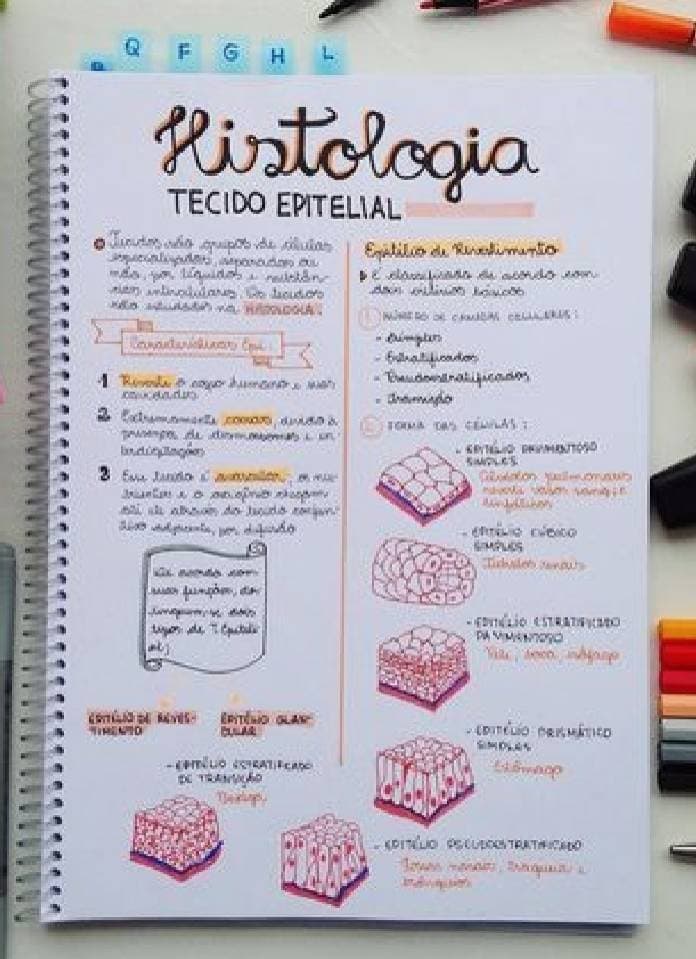 Q F G H L
Histologia
TECIDO EPITELIAL
Tecidos são grupos de células
especializadas, separadas ou
não por líquidos e substân-
cias intercelulares. Os tecidos
são estudados na HISTOLOGIA.
Características Epi.:
1 Reveste o corpo humano e suas
cavidades
2 Extremamente coesas, devido à
presença de desmossomos e in-
terdigitações
3 Esse tecido é avascular, os nu-
trientes e o oxigênio chegam
até ele através do tecido conjun-
tivo adjacente, por difusão
De acordo com
suas funções,
dois
tipos de T. Epiteli
al;
EPITÉLIO DE REVES-
TIMENTO
EPITÉLIO GLAN-
DULAR
- EPITÉLIO ESTRATIFICADO
DE TRANSIÇÃO
Bexiga
Epitélio de Revestimento
É classificado de acordo com
dois critérios básicos
1 NÚMERO DE CAMADAS CELULARES:
- Simples
- Estratificados
- Pseudoestratificados
- Transição
2 FORMA DAS CÉLULAS:
- EPITÉLIO PAVIMENTOSO
SIMPLES
Alvéolos pulmonares
reveste vasos sang. e
linfáticos
- EPITÉLIO CÚBICO
SIMPLES
Túbulos renais
- EPITÉLIO ESTRATIFICADO
PAVIMENTOSO
Pele, boca, esôfago
- EPITÉLIO PRISMÁTICO
SIMPLES
Estômago
- EPITÉLIO PSEUDOESTRATIFICADO
Fossas nasais, traqueia e
brônquios